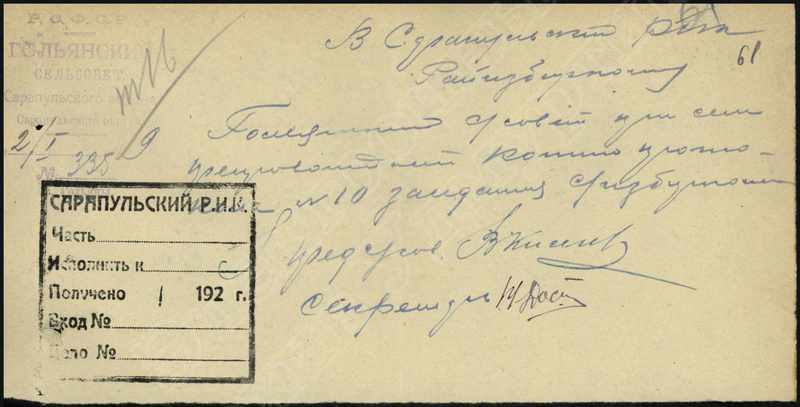 Р.С.Ф.С.Р.
ГОЛЬЯНСКИЙ
СЕЛЬСОВЕТ
Сарапульского
2/I 9
№ 335
61
В Сарапульский рик
Райизбирком
Гольянский с/совет при сем
препровождает копию прото-
кола №10 заседания с/избиркома
пред с/сов.
Секретарь
САРАПУЛЬСКИЙ Р.И.К.
Часть
Исполнить к
Получено 192 г.
Вход №
Дело №